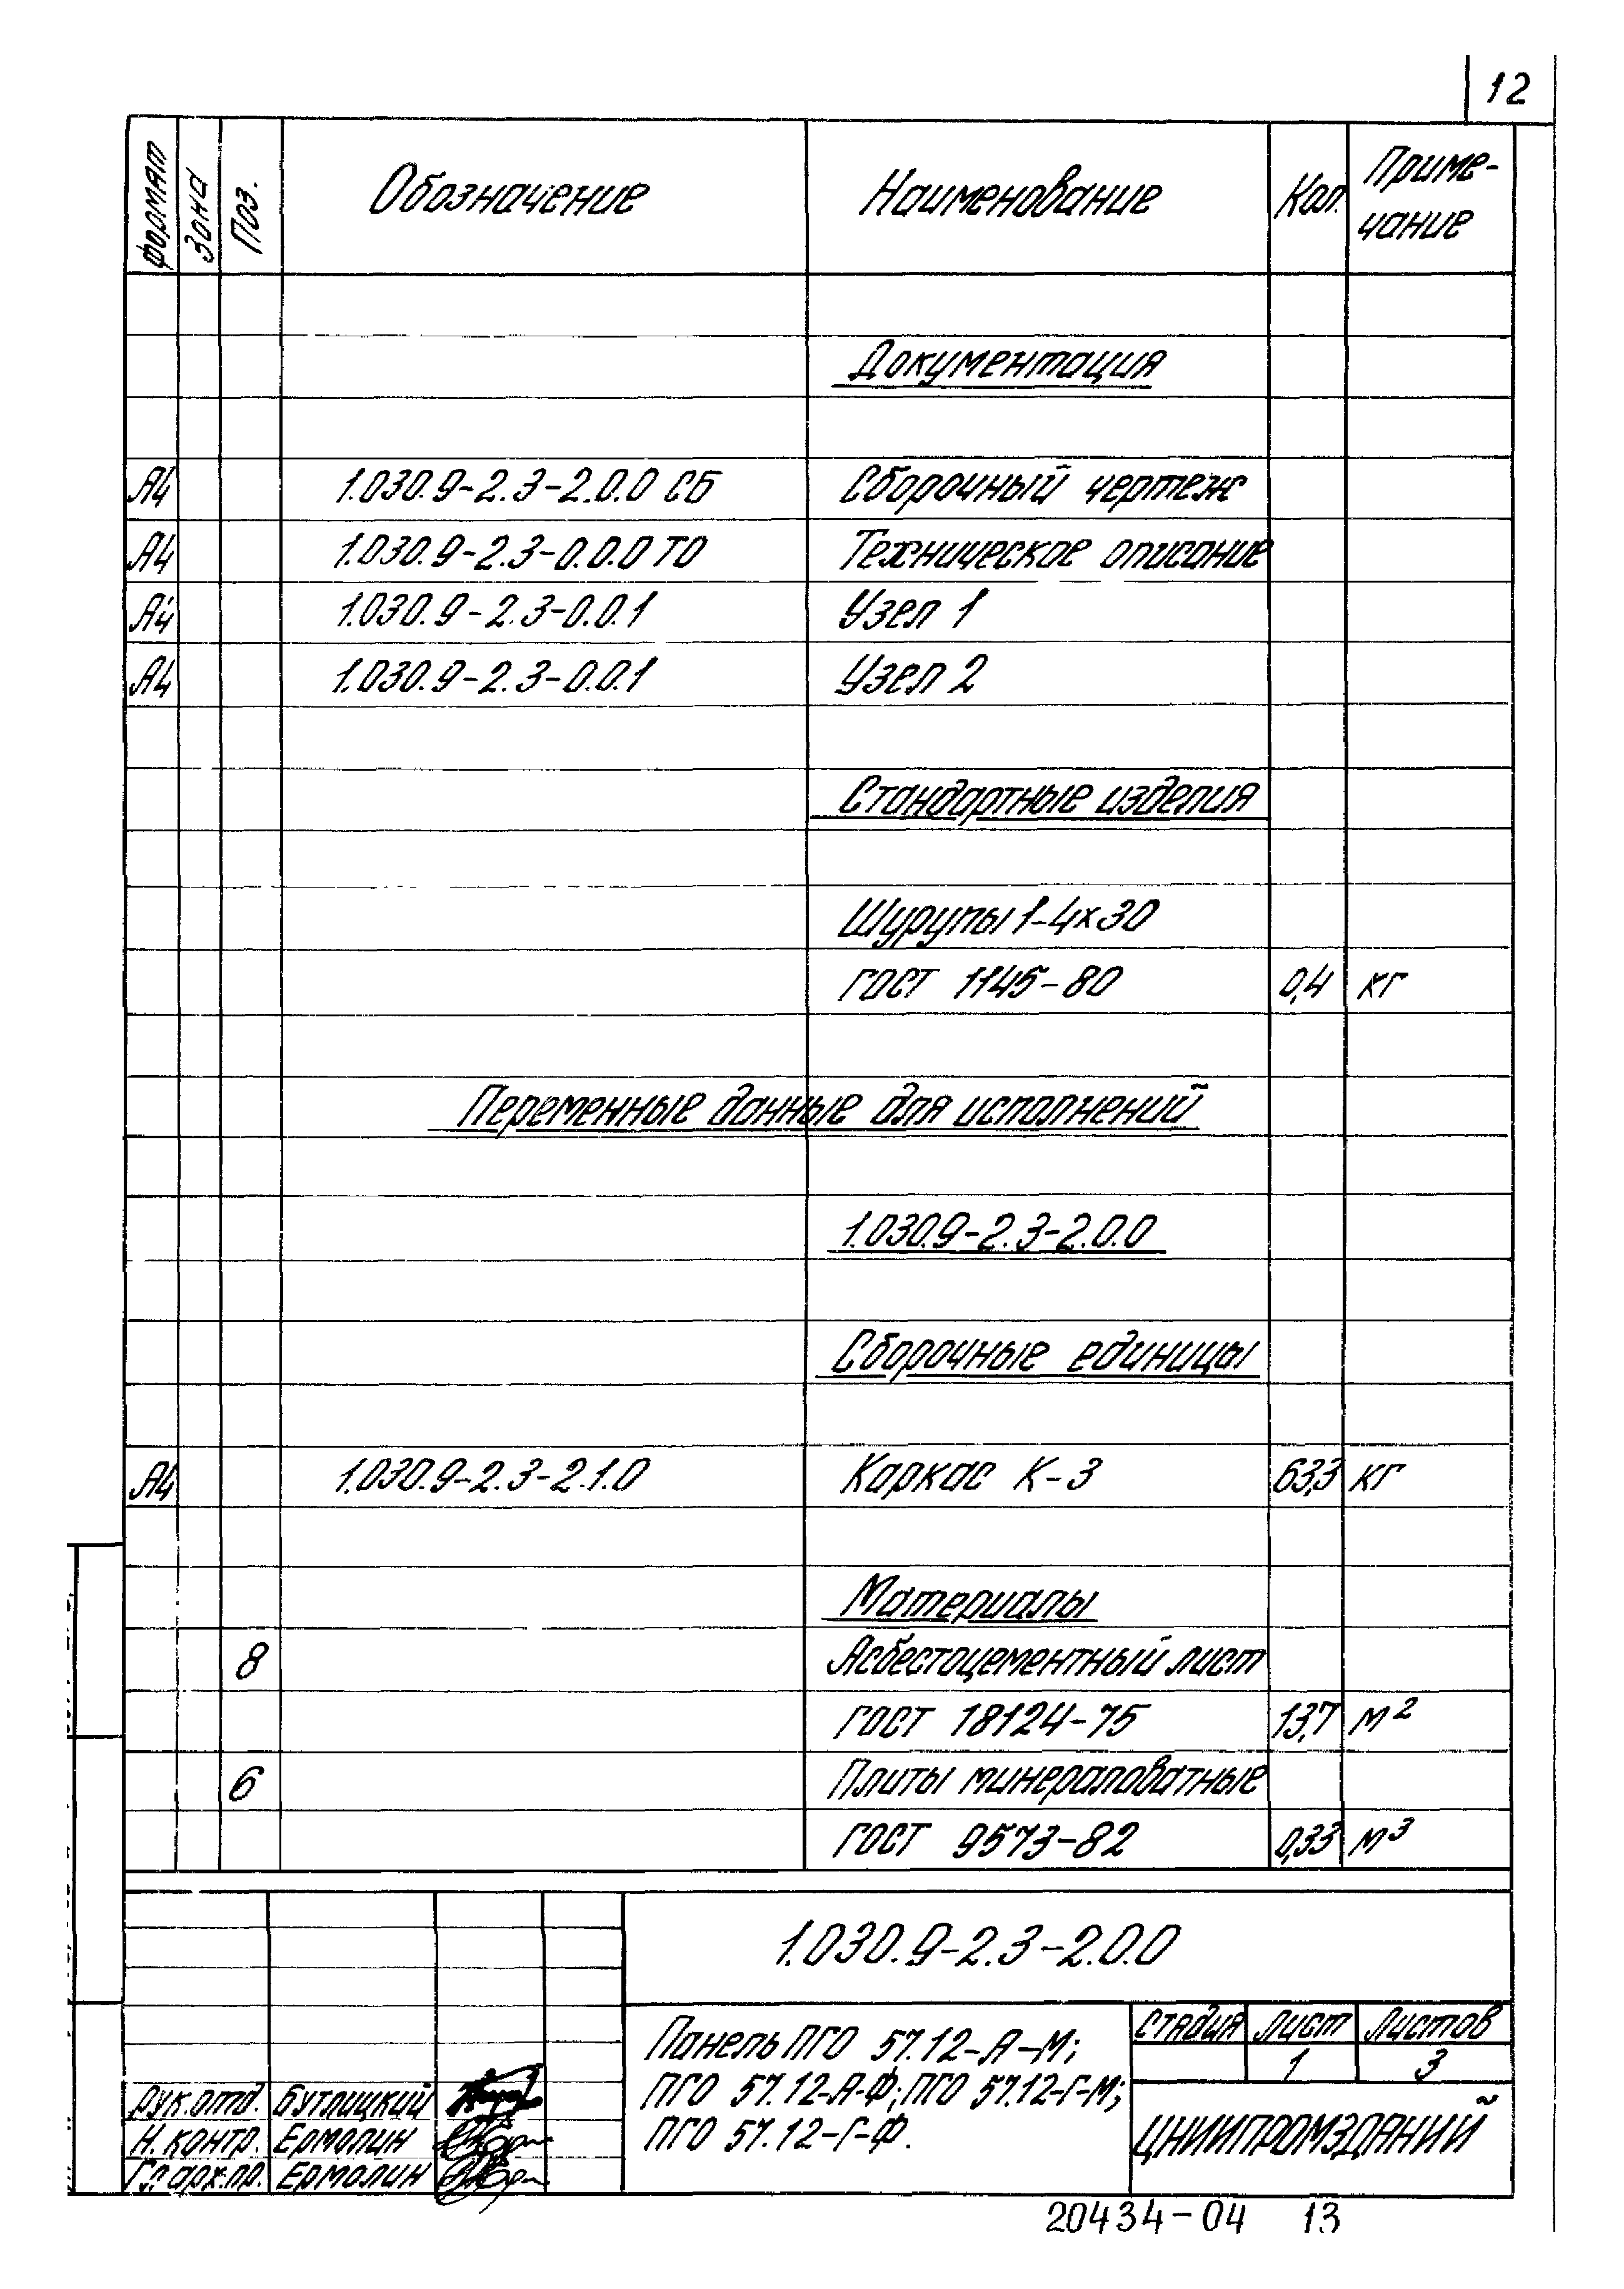 12
Формат Зона Поз. Обозначение Наименование Кол. Приме-
чание
Документация
А4 1.030.9-2.3-2.0.0 СБ Сборочный чертеж
А4 1.030.9-2.3-0.0.0 ТО Техническое описание
А4 1.030.9-2.3-0.0.1 Узел 1
А4 1.030.9-2.3-0.0.1 Узел 2
Стандартные изделия
Шурупы 1-4х30
ГОСТ 1145-80 0,4 кг
Переменные данные для исполнений
1.030.9-2.3-2.0.0
Сборочные единицы
А4 1.030.9-2.3-2.1.0 Каркас К-3 63,3 кг
Материалы
8 Асбестоцементный лист
ГОСТ 18124-75 13,7 м²
6 Плиты минераловатные
ГОСТ 9573-82 0,33 м³
1.030.9-2.3-2.0.0
Панель ПГО 57.12-А-М;
ПГО 57.12-А-Ф; ПГО 57.12-Г-М;
ПГО 57.12-Г-Ф.
Стадия Лист Листов
1 3
ЦНИИПРОМЗДАНИЙ
Рук.отд. Бутлицкий
Н. контр. Ермолин
Гл.арх.пр. Ермолин
20434-04 13